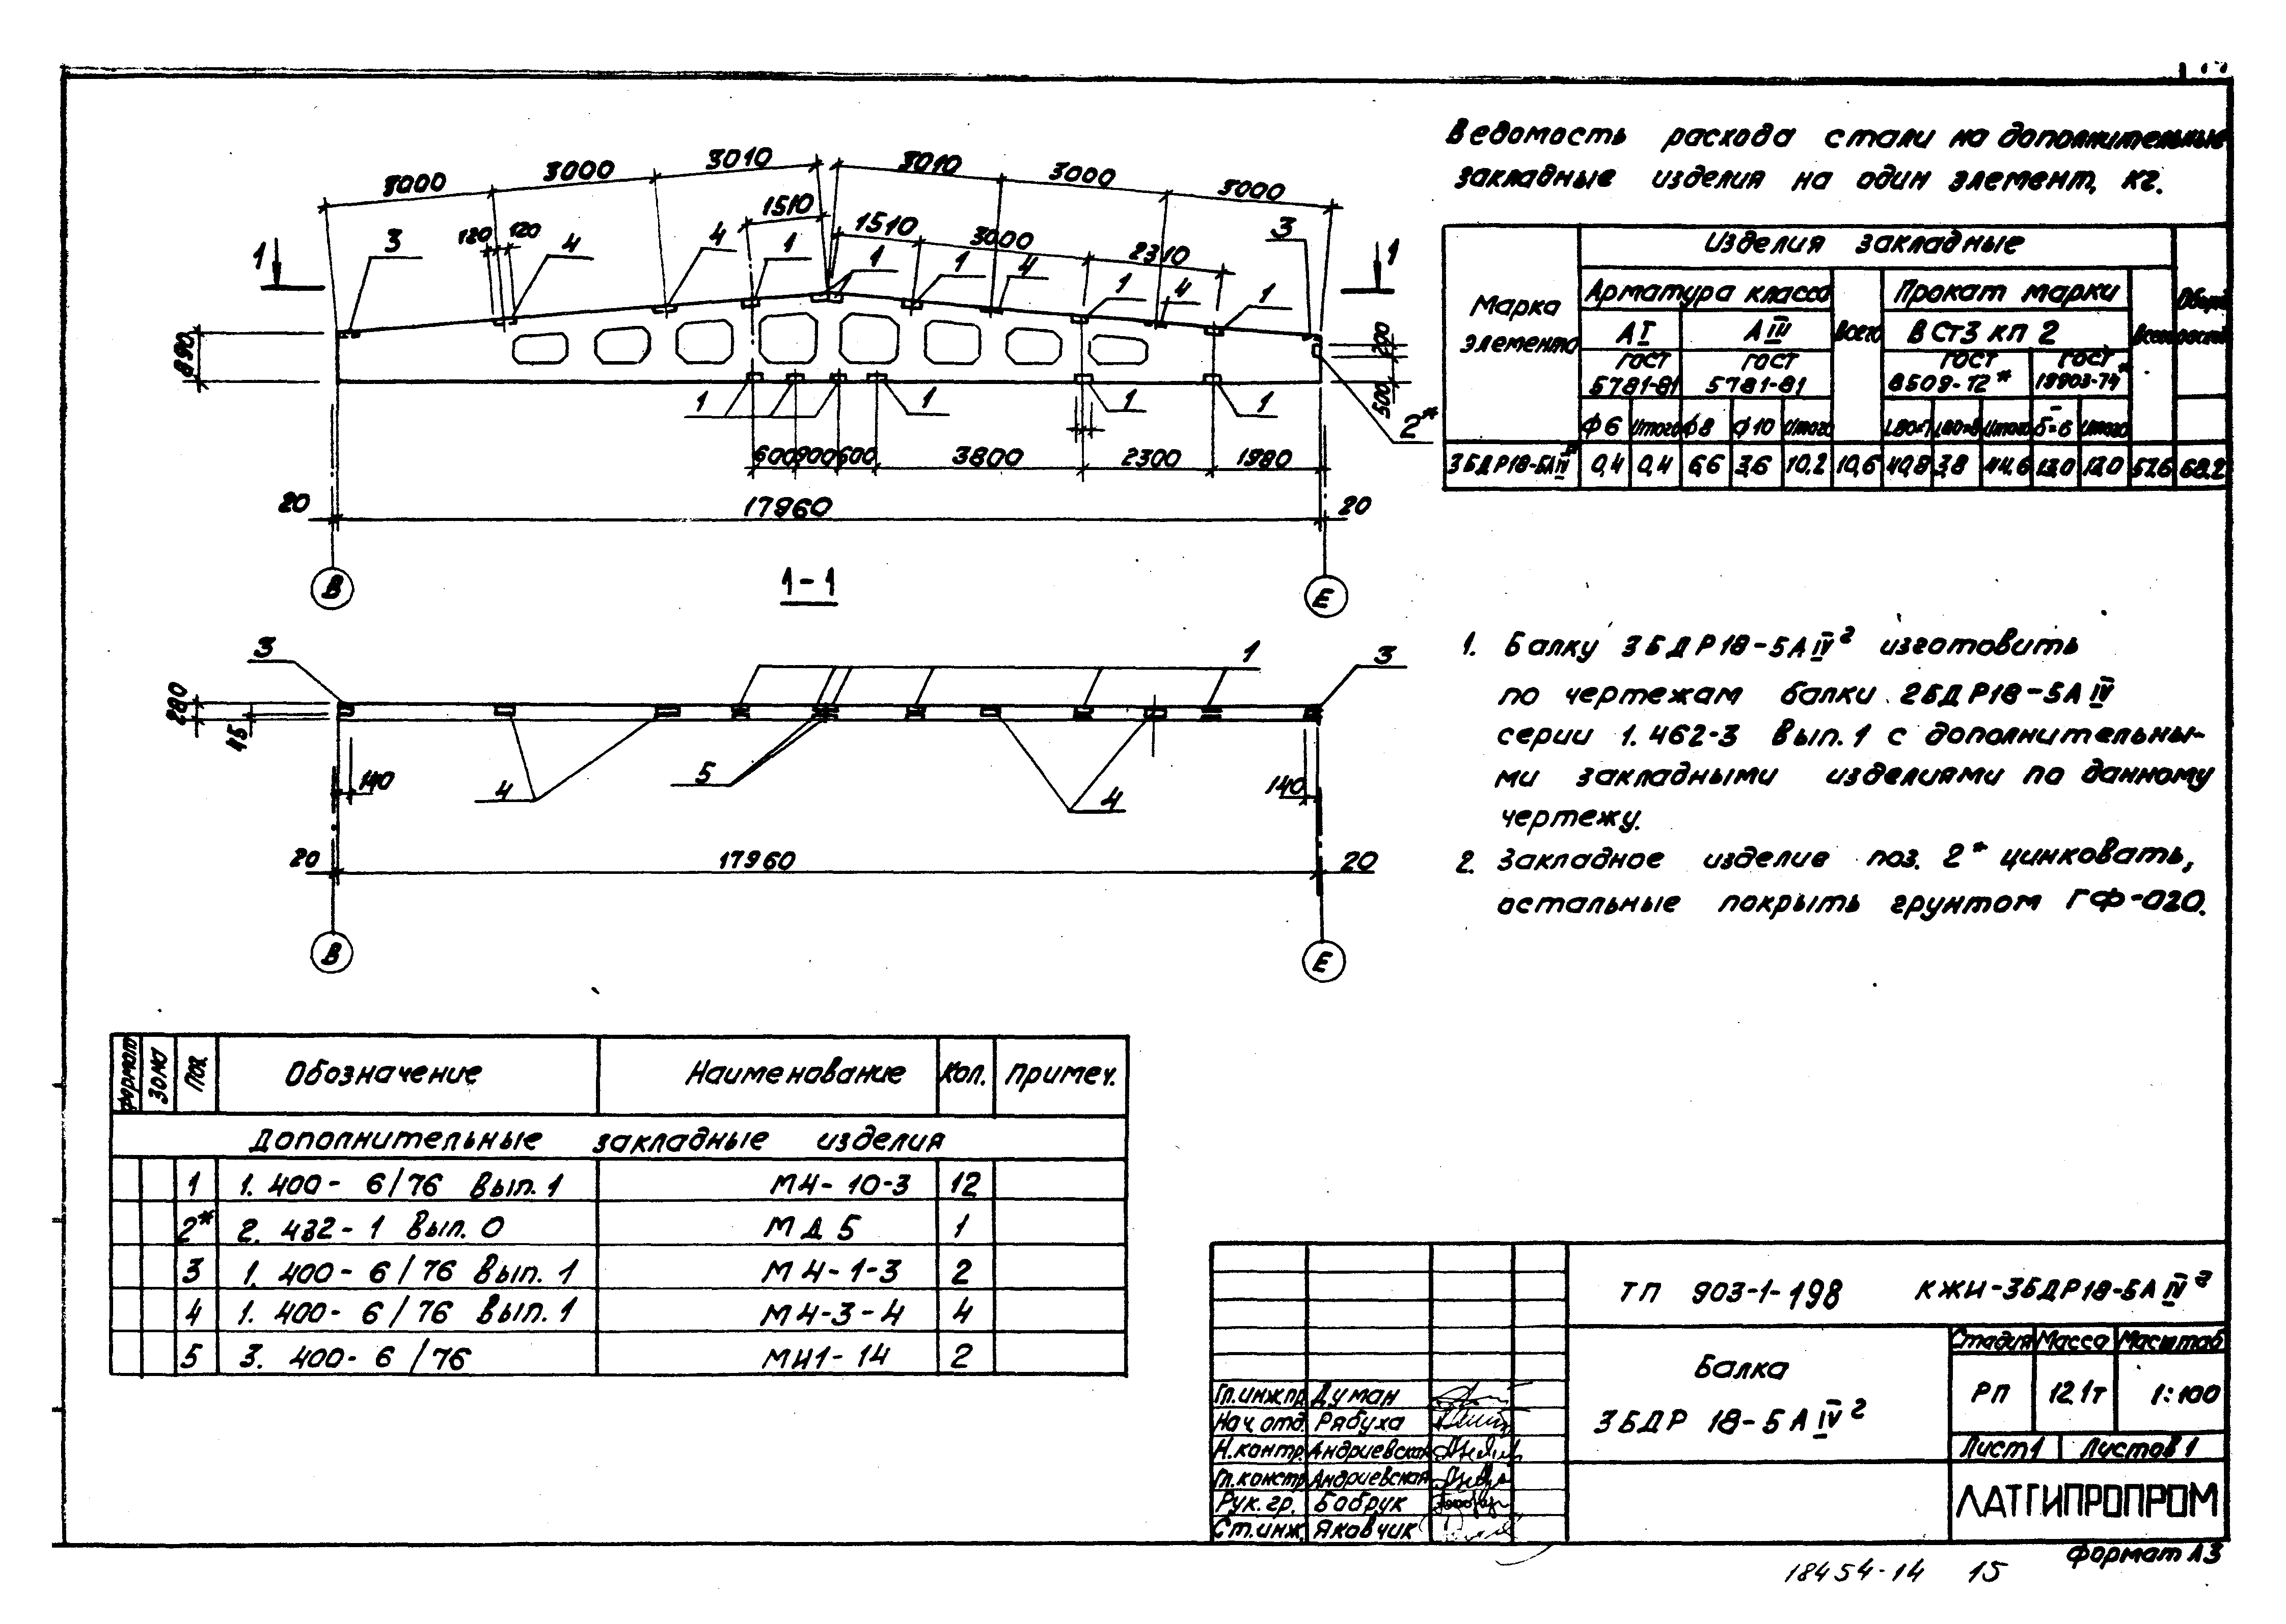 Ведомость расхода стали на дополнительные
закладные изделия на один элемент, кг.
Марка элемента
Изделия закладные
Арматура класса
Всего
Прокат марки
Всего
АI
АIII
ВСт3 кп 2
ГОСТ 5781-81
ГОСТ 5781-81
ГОСТ 8509-72*
ГОСТ 19903-74*
ф6 Итого ф8 ф10 Итого
Итого δ=6 Итого
3БДР18-5АIV 0,4 0,4 6,6 3,6 10,2 10,6 40,8 3,8 44,6 13,0 13,0 57,6 68,2
3000 3000 3010 3010 3000 3000
1510 1510 3000 2310
120 120
1 3 4 4 1 1 1 4 1 4 1 3 1
890
200
500
1 1 1 1 2*
600 900 600 3800 2300 1980
20 17960 20
В Е
1-1
3 1 3
280
45
140 4 5 4 140
20 17960 20
В Е
1. Балку 3БДР18-5АIVг изготовить
по чертежам балки 2БДР18-5АIV
серии 1.462-3 Вып.1 с дополнительны-
ми закладными изделиями по данному
чертежу.
2. Закладное изделие поз. 2* цинковать,
остальные покрыть грунтом ГФ-020.
Формат Зона Поз. Обозначение Наименование Кол. Примеч.
Дополнительные закладные изделия
1 1. 400- 6/76 Вып. 1 М4- 10-3 12
2* 2. 432- 1 Вып. 0 МД 5 1
3 1. 400- 6/76 Вып. 1 М4-1-3 2
4 1. 400- 6/76 Вып. 1 М4-3-4 4
5 3. 400- 6/76 МИ1- 14 2
ТП 903-1-198 КЖИ-3БДР18-5АIVг
Балка
3БДР 18-5АIVг
Стадия Масса Масштаб
РП 12.1т 1:100
Лист 1 Листов 1
ЛАТГИПРОПРОМ
Гл.инж.пр. Думан
Нач.отд. Рябуха
Н.контр. Андриевская
Гл.констр. Андриевская
Рук.гр. Бабрук
Ст.инж. Яковчик
Формат А3
18454-14 15